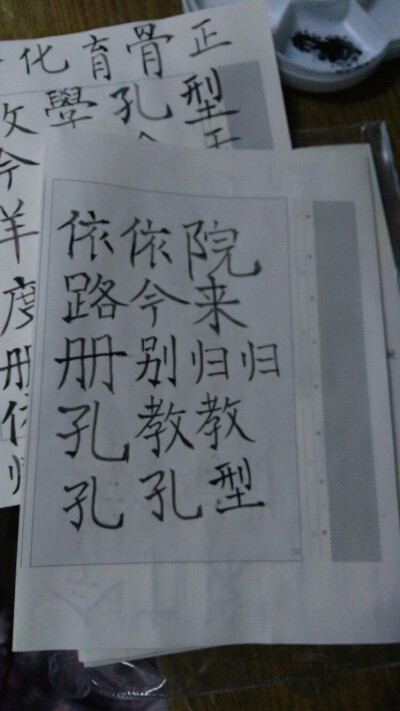 化育骨正
學孔型
今
羊
度
册
依依院
路今来
册别归归
孔教教
孔孔型